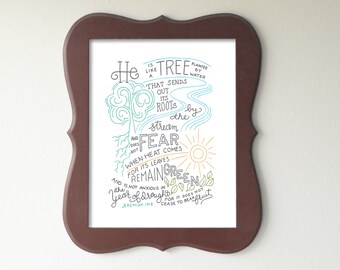 He IS LIKE A TREE PLANTED BY WATER
THAT SENDS
OUT ITS
ROOTS by
the
stream
AND DOES NOT FEAR
WHEN HEAT COMES
FOR ITS LEAVES
REMAIN GREEN
AND IS NOT ANXIOUS IN
Year of drought
FOR IT DOES NOT
CEASE TO BEAR fruit
JEREMIAH 17:8